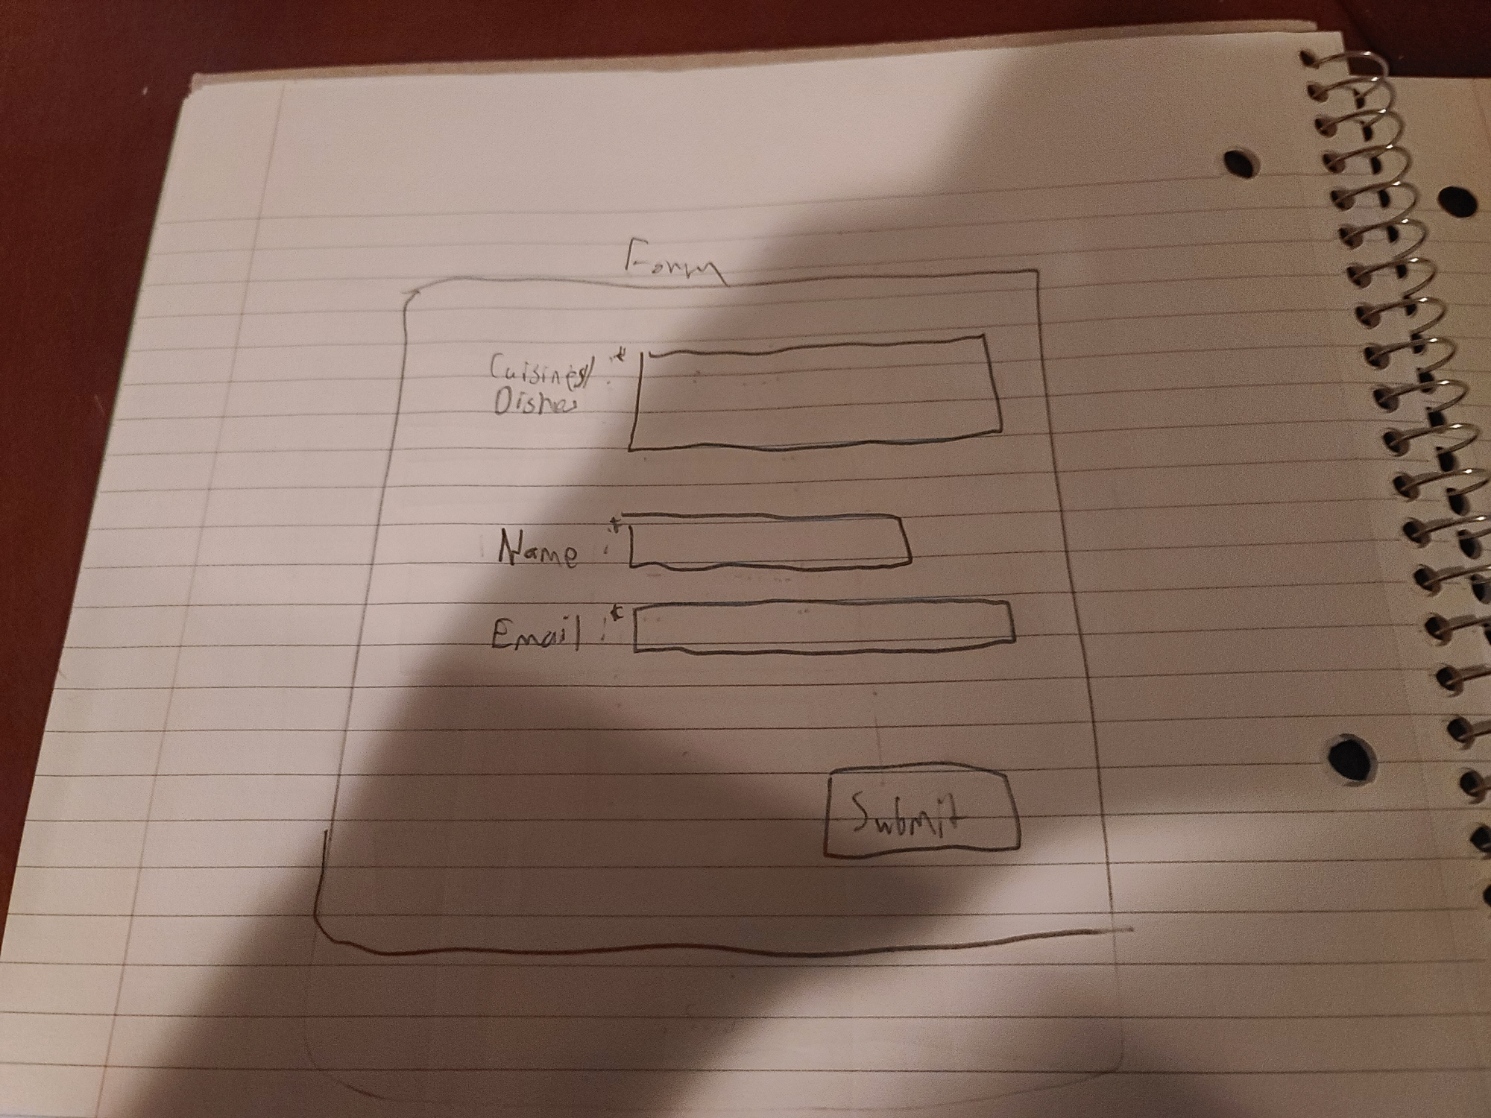 Form
Cuisines/ :*
Dishes
Name :*
Email :*
Submit